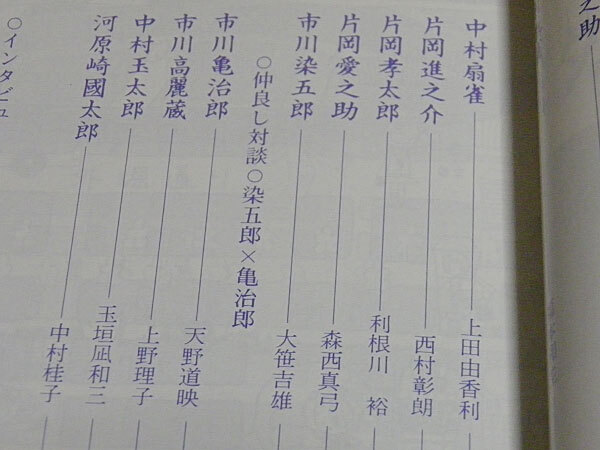 之助
中村扇雀 上田由香利
片岡進之介 西村彰朗
片岡孝太郎 利根川 裕
片岡愛之助 森西真弓
市川染五郎 大笹吉雄
○仲良し対談○染五郎×亀治郎
市川亀治郎 天野道映
市川高麗蔵 上野理子
中村玉太郎 玉垣凪和三
河原崎國太郎 中村桂子
○インタビュ